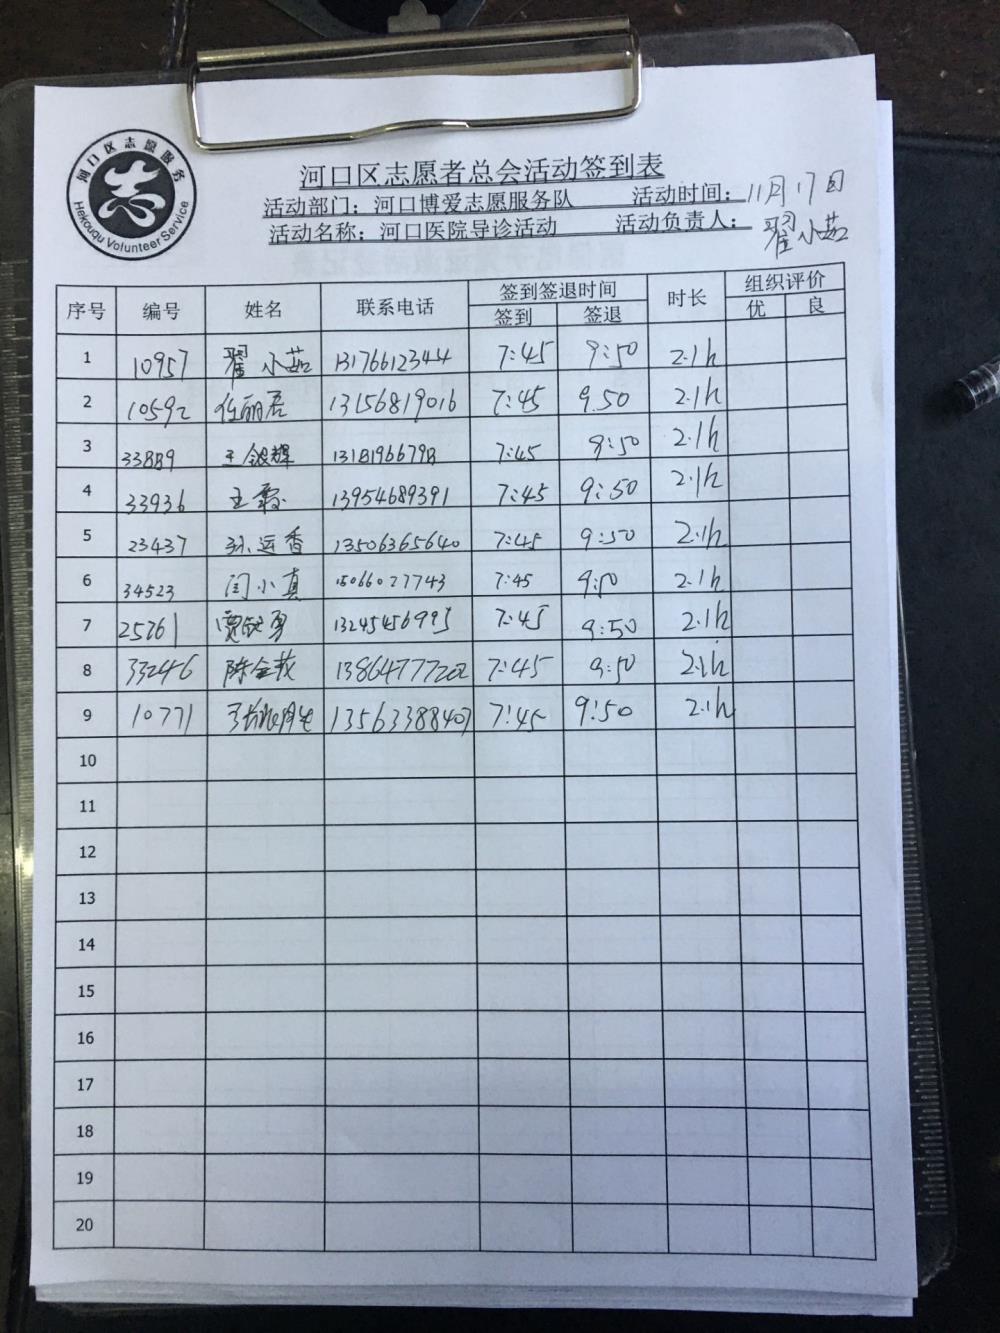 河口区志愿服务
Hekouqu Volunteer Service
河口区志愿者总会活动签到表
活动部门：河口博爱志愿服务队 活动时间：11月17日
活动名称：河口医院导诊活动 活动负责人：翟小茹
序号 编号 姓名 联系电话 签到签退时间 时长 组织评价
签到 签退 优 良
1 10957 翟小茹 13176612344 7:45 9:50 2.1h
2 10592 任丽君 13156819016 7:45 9.50 2.1h
3 33889 王银辉 7:45 9:50 2.1h
4 33936 王霞 13954689391 7:45 9:50 2.1h
5 23437 孙运香 13506365640 7:45 9:50 2.1h
6 34523 闫小真 15066027743 7:45 9:50 2.1h
7 25761 13245456995 7:45 9:50 2.1h
8 33246 陈全莪 7:45 9:50 2.1h
9 10771 13563388407 7:45 9:50 2.1h
10
11
12
13
14
15
16
17
18
19
20